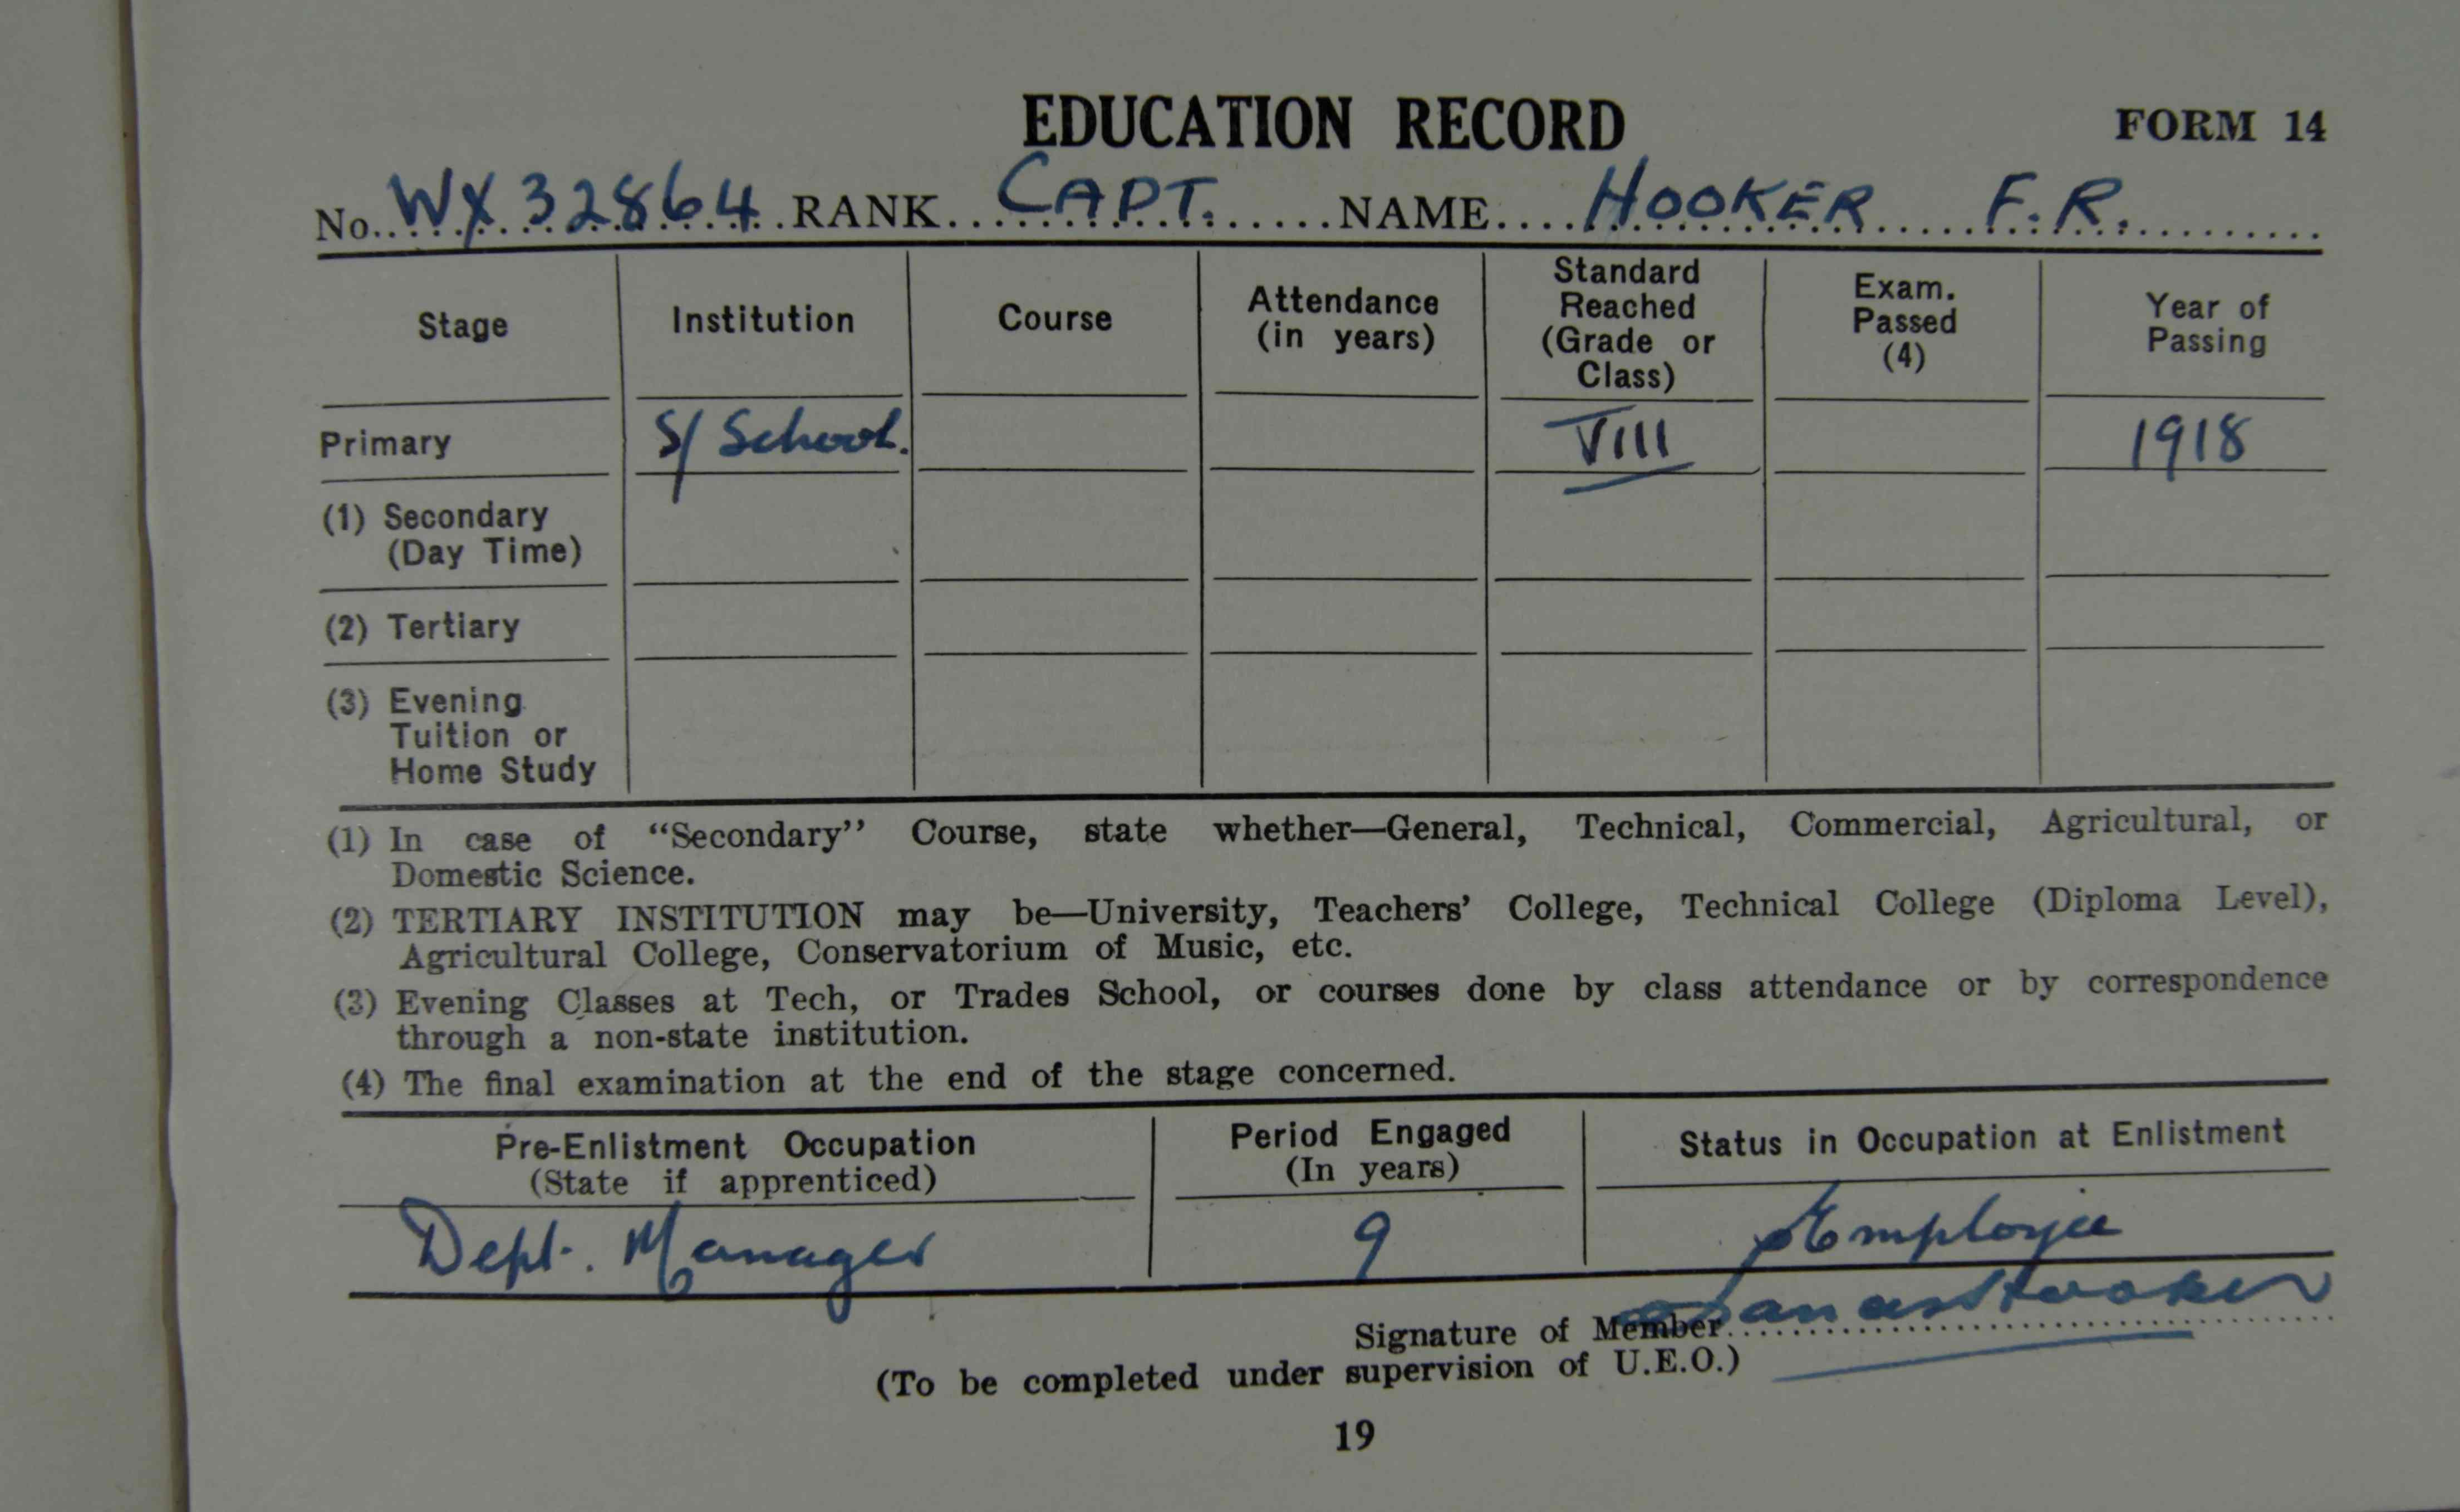 EDUCATION RECORD FORM 14
No. WX 32864 RANK CAPT. NAME HOOKER F.R.
Stage Institution Course Attendance (in years) Standard Reached (Grade or Class) Exam. Passed (4) Year of Passing
Primary S/ School. VIII 1918
(1) Secondary
(Day Time)
(2) Tertiary
(3) Evening
Tuition or
Home Study
(1) In case of “Secondary” Course, state whether—General, Technical, Commercial, Agricultural, or
Domestic Science.
(2) TERTIARY INSTITUTION may be—University, Teachers’ College, Technical College (Diploma Level),
Agricultural College, Conservatorium of Music, etc.
(3) Evening Classes at Tech, or Trades School, or courses done by class attendance or by correspondence
through a non-state institution.
(4) The final examination at the end of the stage concerned.
Pre-Enlistment Occupation (State if apprenticed) Period Engaged (In years) Status in Occupation at Enlistment
Dept. Manager 9 Employee
Signature of Member Hooker
(To be completed under supervision of U.E.O.)
19